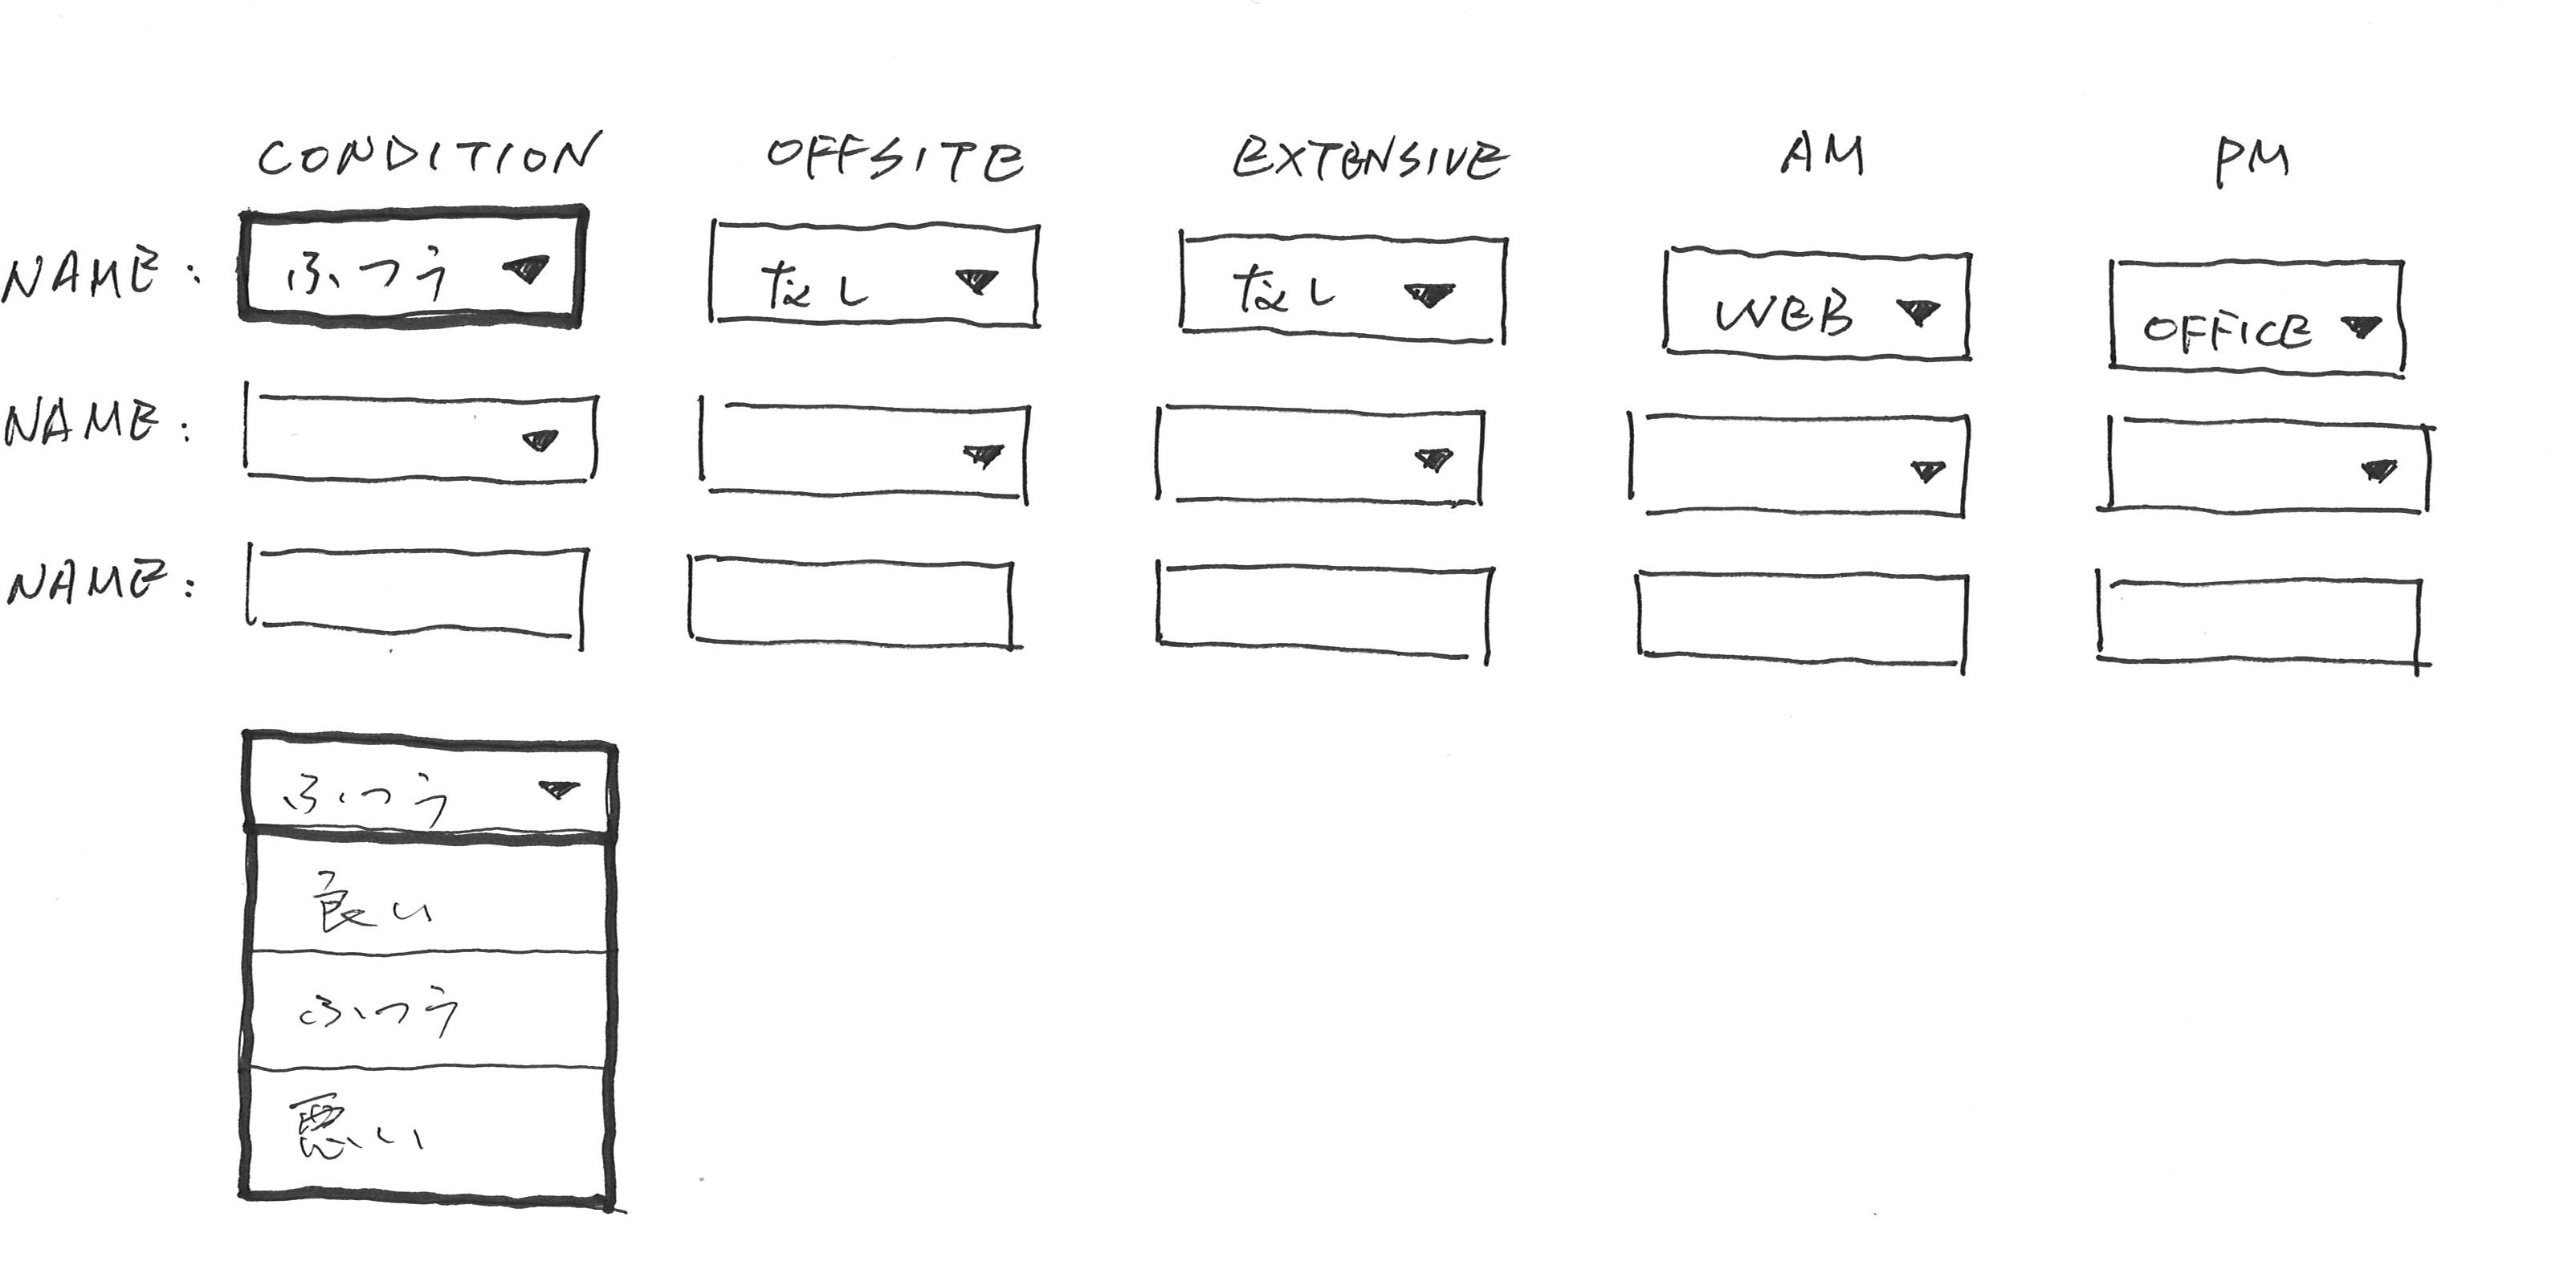 CONDITION OFFSITE EXTENSIVE AM PM
NAME: ふつう なし なし WEB OFFICE
NAME:
NAME:
ふつう
良い
ふつう
悪い